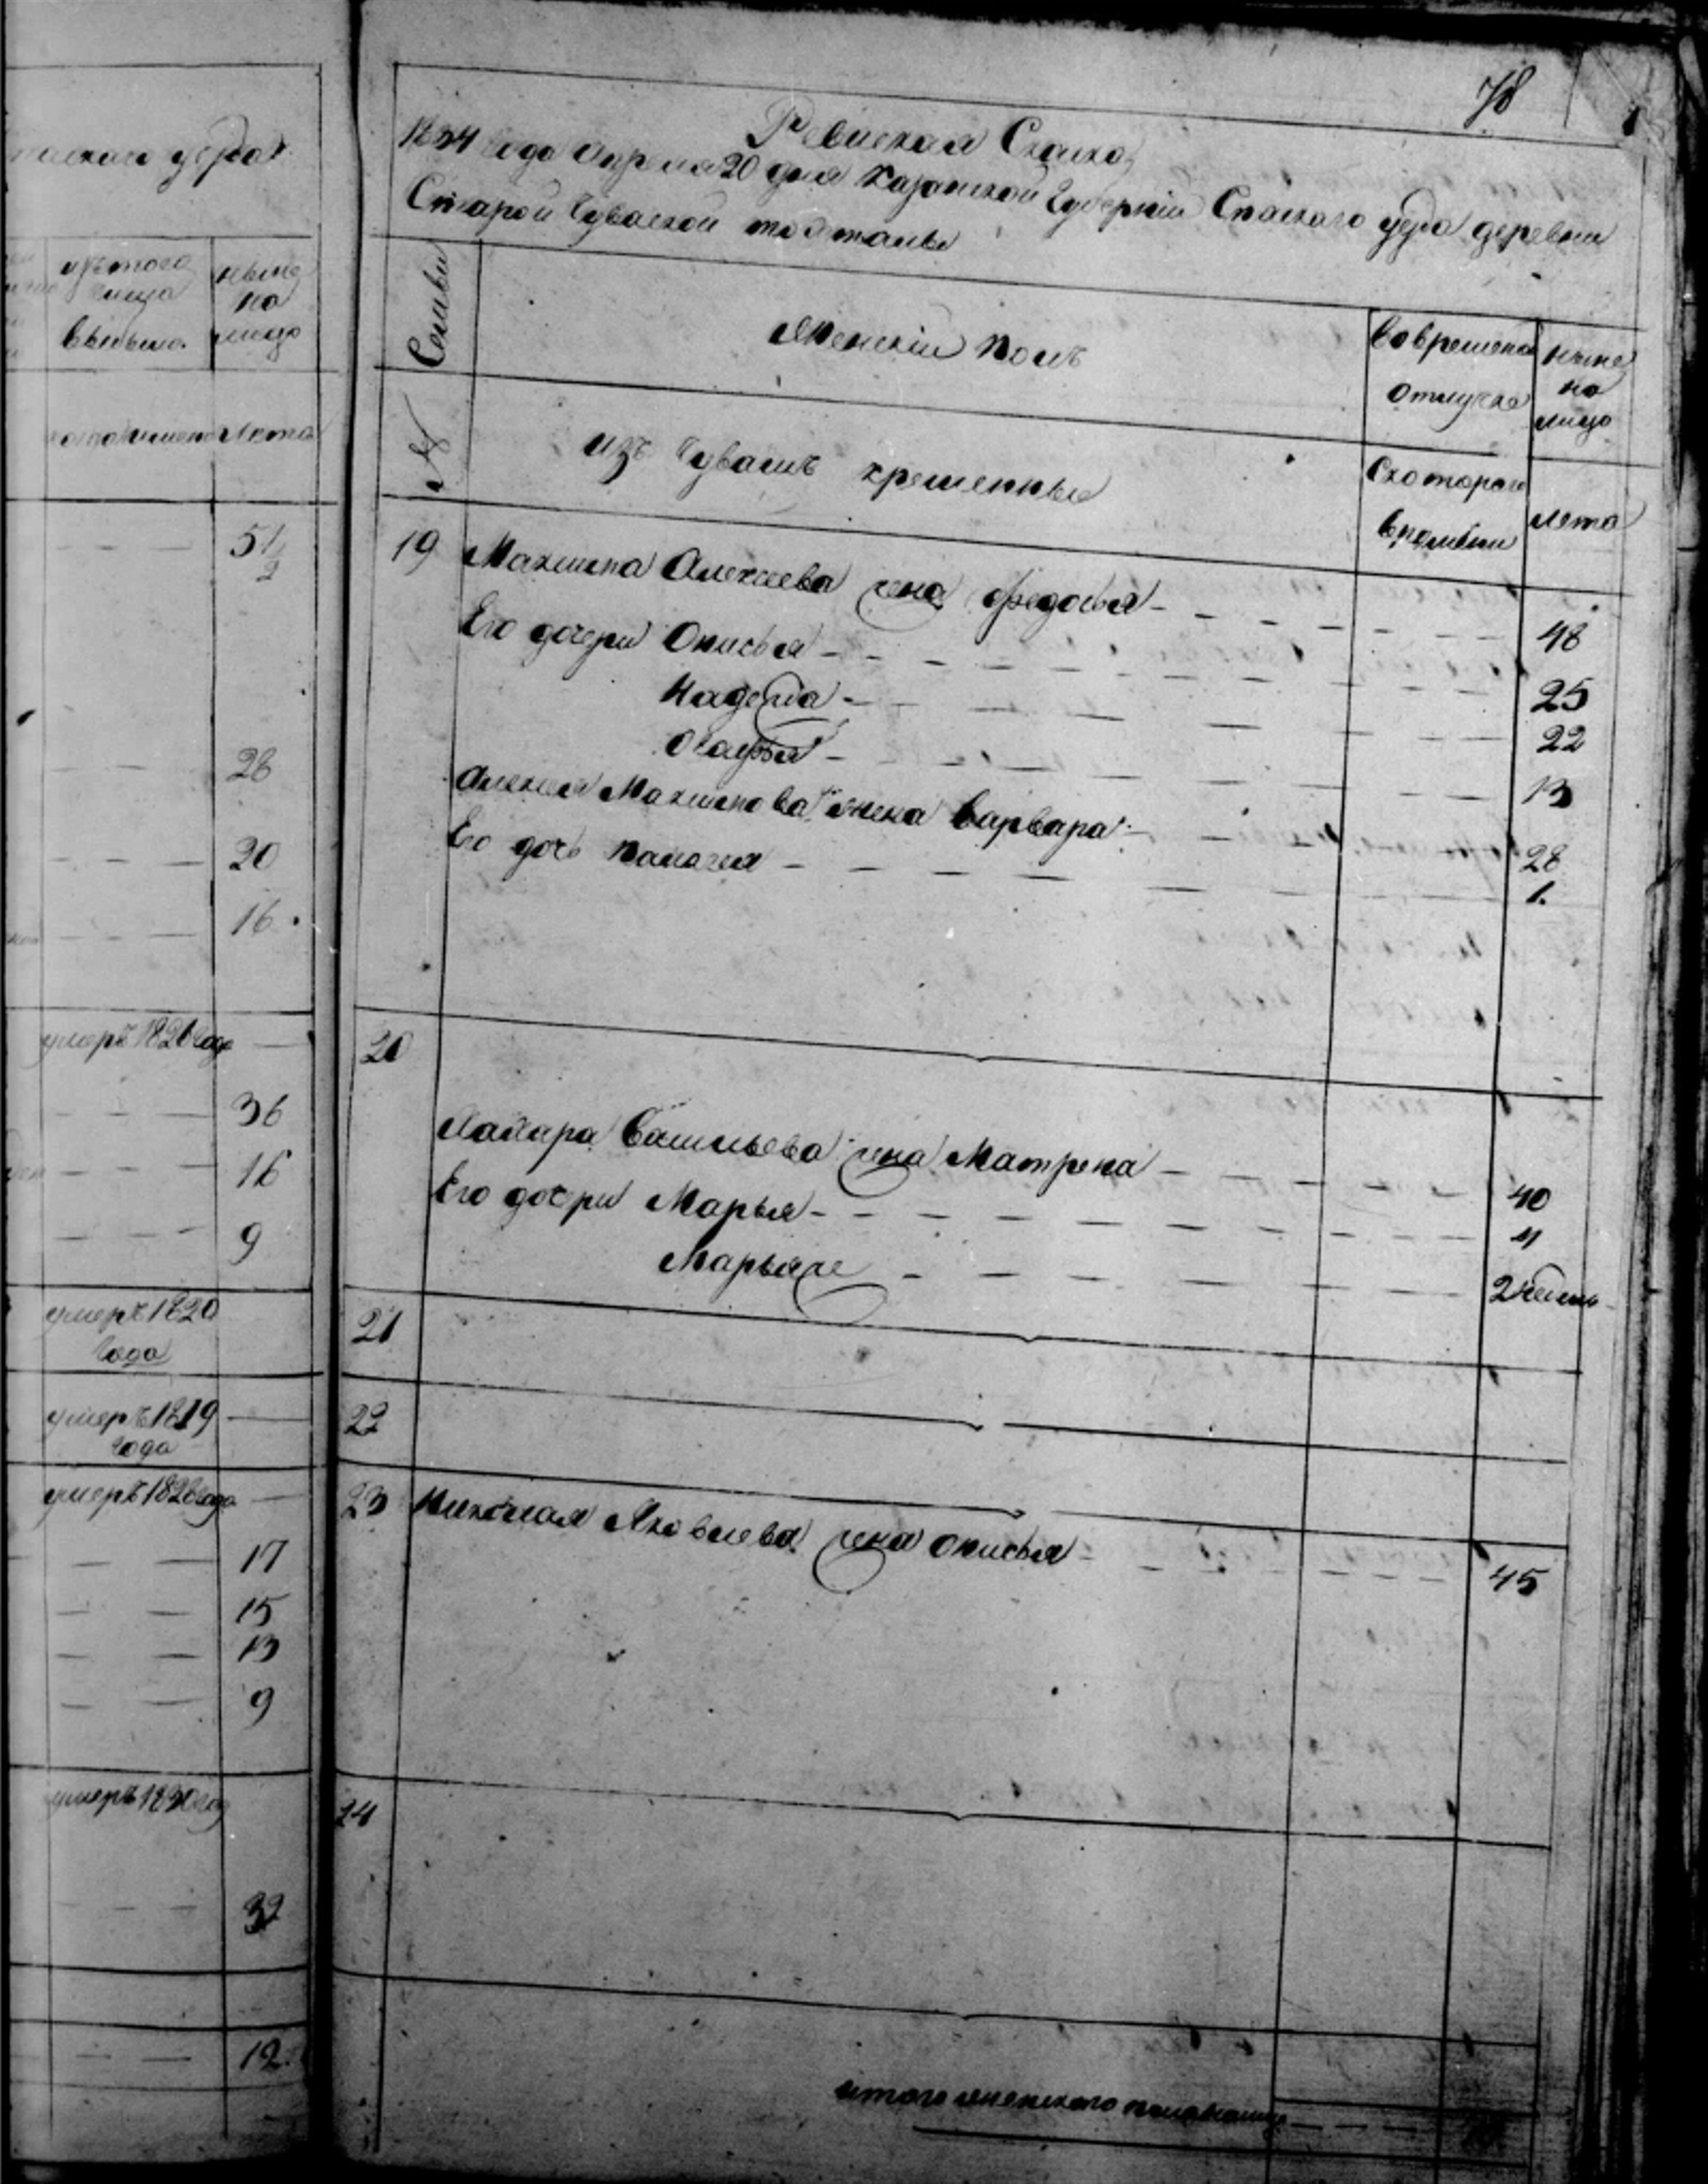 уезда
изтого
числа
выбыло
ныне
на
лицо
Лета
51/2
28
20
16
умеръ 1826 года
36
16
9
умеръ 1820
года
умеръ 1819
года
умеръ 1826 года
17
15
13
9
32
12
78
Ревизская Сказка
1834 года Апреля 20 дня Казанской Губернии Спаского уезда деревни
Старой Чуваской
Семьи
Женскiй полъ
Вовремена
отлучке
ныне
на
лицо
№
изъ Чувашъ крешенные
Скоторого
времени
лета
19 Максима Алексеева жена Федосья 48
Его дочери Онисья 25
Надежда 22
Огафья 13
Алексея Максимова жена Варвара 28
Его дочь Палагея 1.
20
Лазара Васильева жена Матрена 40
Его дочери Марья 4
2 недели
21
22
23 Николая Яковлева жена Онисья 45
24
итого женского пола налицо